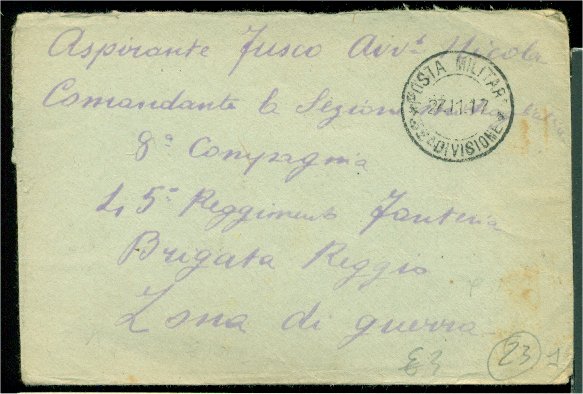 Aspirante Fusco Avv. Nicola
Comandante la Sezione
8ª Compagnia
45° Reggimento Fanteria
Brigata Reggio
Zona di guerra
POSTA MILITARE
27.11.17
DIVISIONE
23